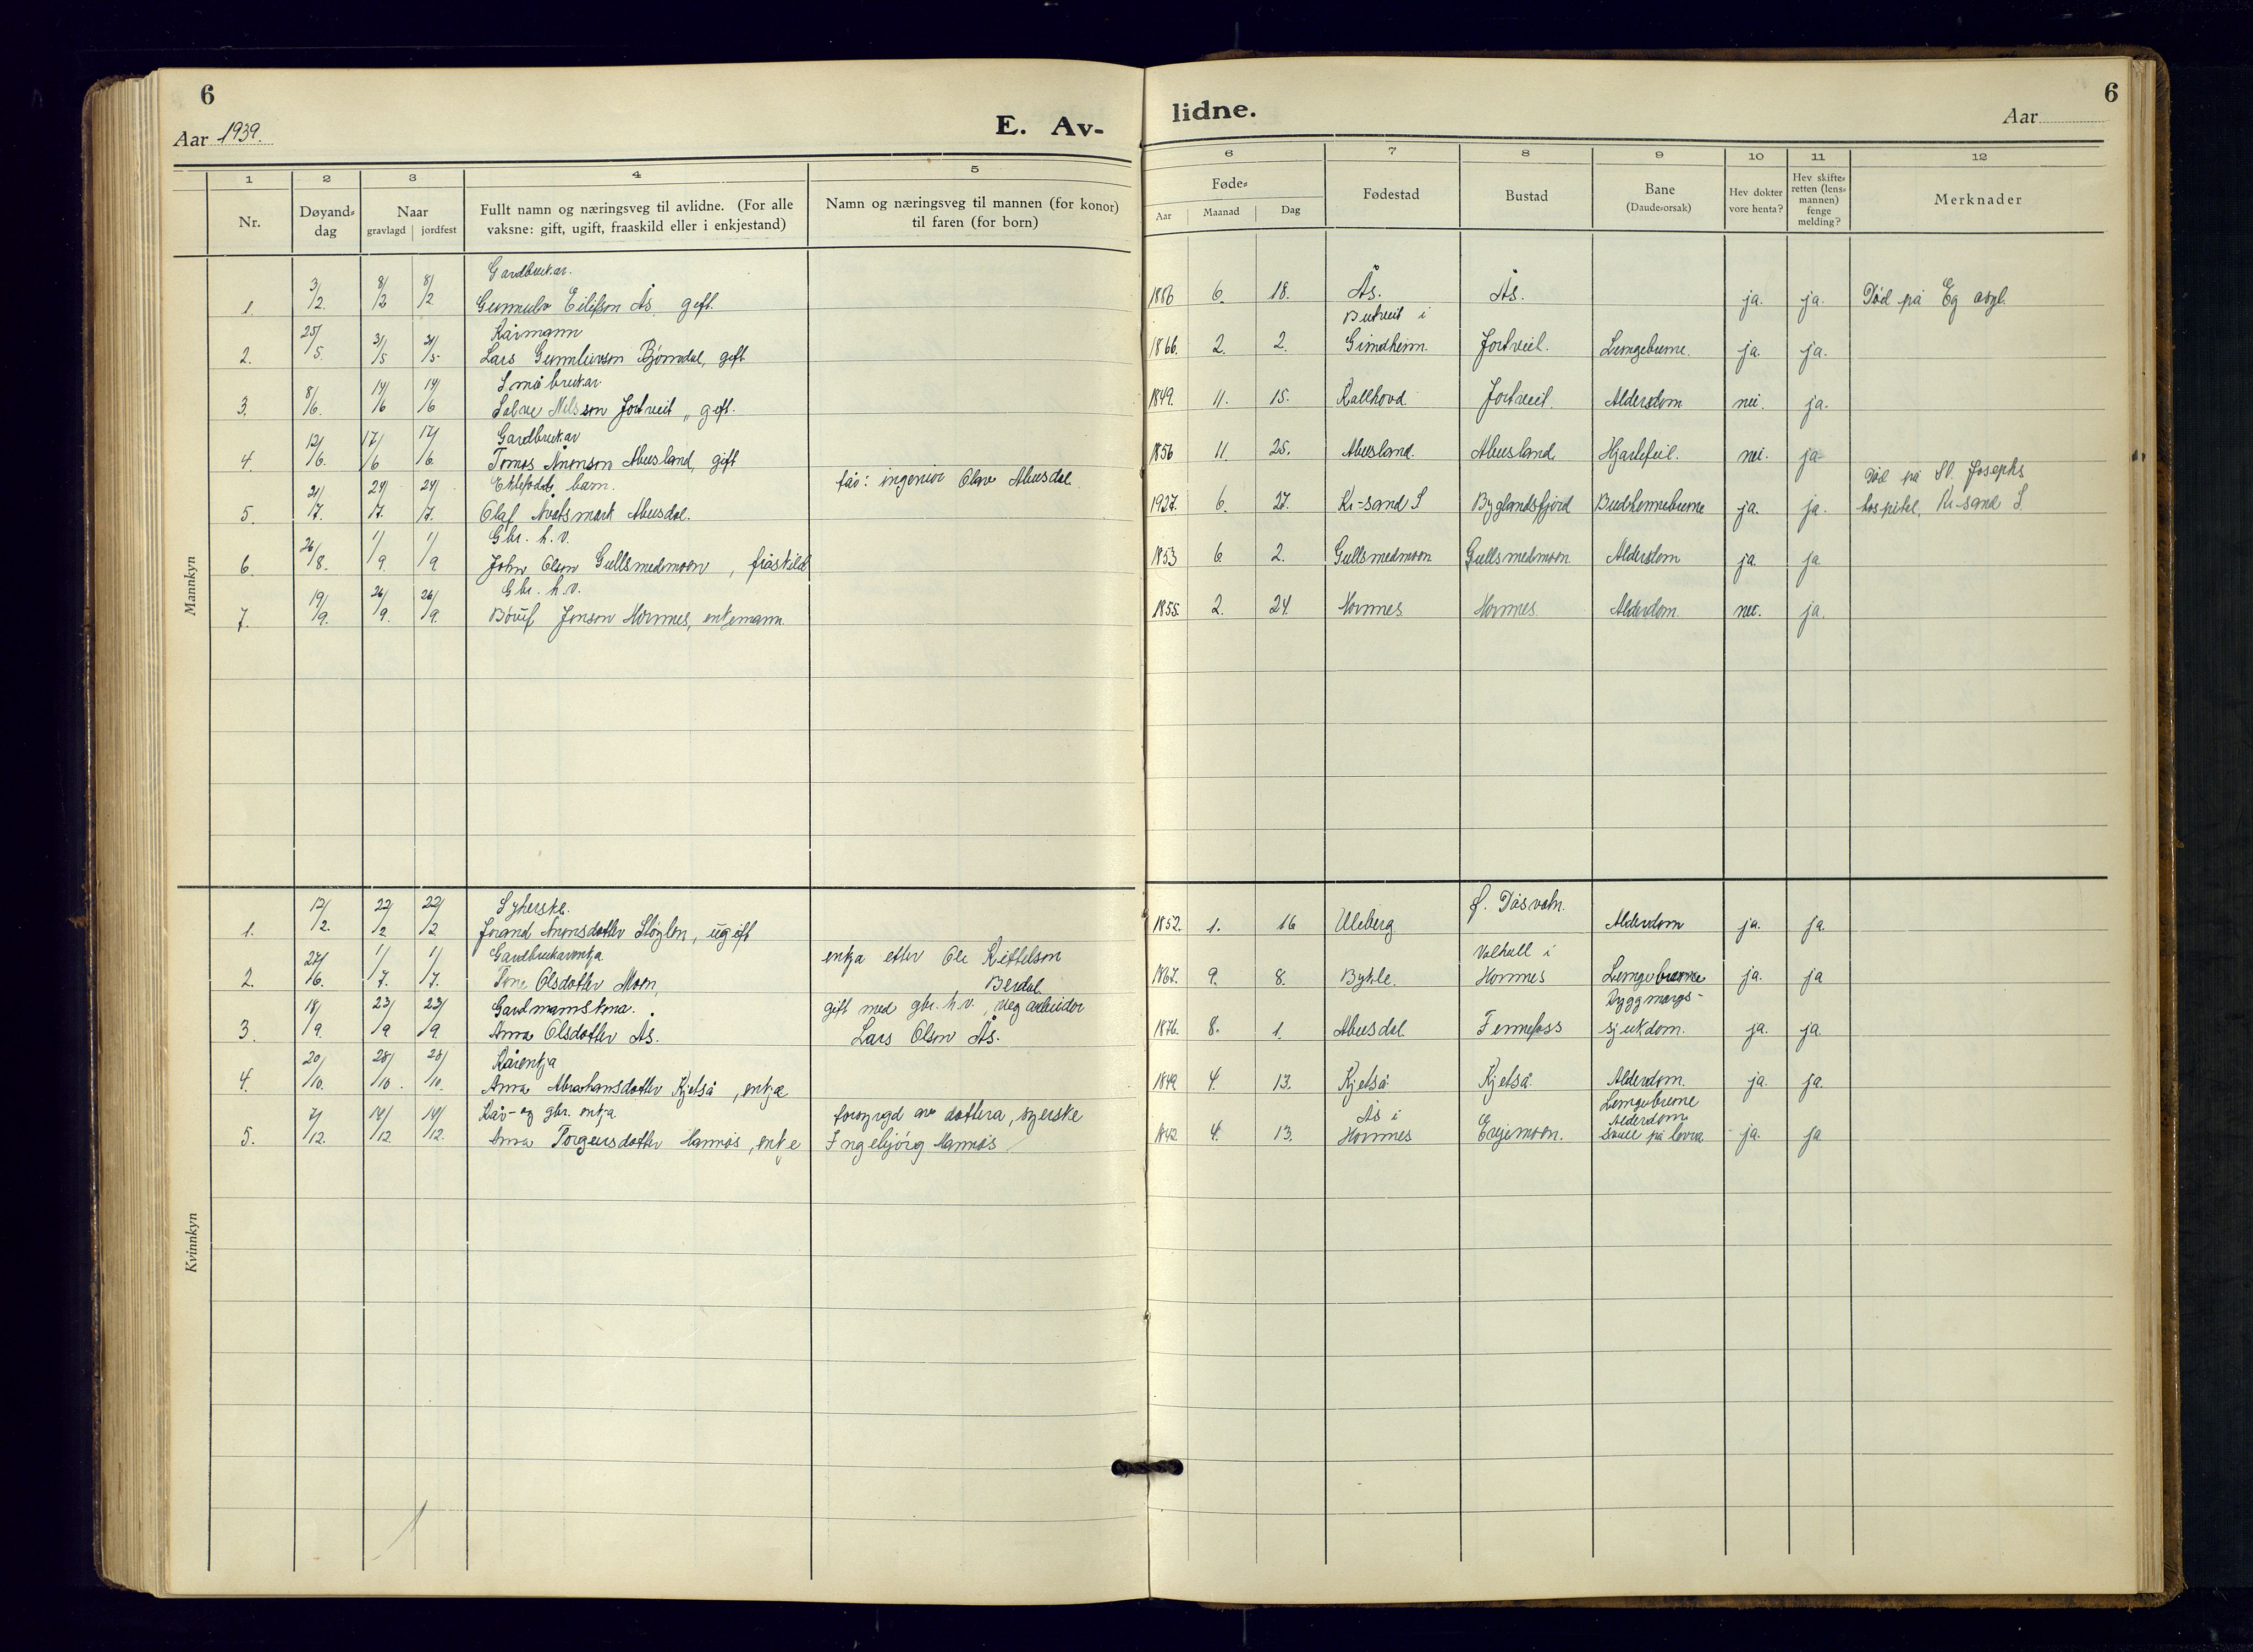 6
Aar 1939.
E. Av-
1
2
3
4
5
Nr.
Døyand-
dag
Naar
gravlagd
jordfest
Fullt namn og næringsveg til avlidne. (For alle
vaksne: gift, ugift, fraaskild eller i enkjestand)
Namn og næringsveg til mannen (for konor)
til faren (for born)
Mannkyn
Gardbrukar.
1. 3/2. 8/2 8/2 Gunnulv Eilifson Ås, gift.
Kårmann
2. 25/5. 31/5 31/5 Lars Gunnleivson Bjørndal, gift
Småbrukar
3. 8/6. 14/6 14/6 Salve Nilsson Jortveit, gift.
Gardbrukar
4. 12/6. 17/6 17/6 Tomas Ånonson Abusland, gift
Ektefødde barn. far: ingeniør Olav Abusdal
5. 21/7. 24/7. 24/7. Olaf Abusdal.
Gbr. h.v.
6. 26/8. 1/9 1/9 John Olson Gullsmedmoen, fråskild
Gbr. h.v.
7. 19/9. 26/9. 26/9. Jonson Hornnes, enkemann
Kvinnkyn
Syherske.
1. 17/2. 22/2 22/2 Jorand ugift
Gardbrukarenkja enkja etter Ole Kittelson
2. 27/6. 1/7. 1/7. Tone Olsdotter Moen, Berdal
Gardmannskona. gift med gbr. h.v., vegarbeider
3. 18/9. 23/9 23/9. Anna Olsdotter Ås. Lars Olson Ås.
Kårenkja
4. 20/10. 28/10. 28/10. Anna Abrahamsdotter Kjetså, enkja
Kår- og gbr. enkja forsyrgd av dottera, syerske
5. 7/12. 14/12 14/12. Anna Torgeirsdotter Hannås, enkje Ingebjørg Hannås
lidne.
6
Aar
6
7
8
9
10
11
12
Føde-
Aar
Maanad
Dag
Fødestad
Bustad
Bane
(Daude-orsak)
Hev dokter
vore henta?
Hev skifte-
retten (lens-
mannen)
fenge
melding?
Merknader
1886 6. 18. Ås. Ås. ja. ja. Død på Eg asyl.
i
1866. 2. 2. Grindheim. Jortveit. Lungebrune. ja. ja.
1849. 11. 15. Kallhovd Jortveit. Alderdom nei. ja.
1856 11 25. Abusland. Abusland. Hjartefeil. nei. ja
Død på St. Josephs
1927. 6. 27. Kr-sand S Byglandsfjord Bukhinnebrune ja. ja. hospital, Kr-sand S.
1853 6. 2. Gullsmedmoen Gullsmedmoen Alderdom ja. ja
1855. 2. 24. Hornnes Hornnes Alderdom. nei. ja.
f. Dåsvatn.
1852. 1. 16 Uleberg Alderdom ja. ja.
Valhall i
1867. 9. 8. Bykle. Hornnes Lungebrune ja. ja
Ryggmargs-
1876. 8. 1. Abusdal Fennefoss sjukdom. ja. ja
1849 4. 13. Kjetså Kjetså Alderdom. ja. ja.
Lungebrune
Ås i Alderdom
1842 4. 13. Hornnes Evjemoen. på ja. ja